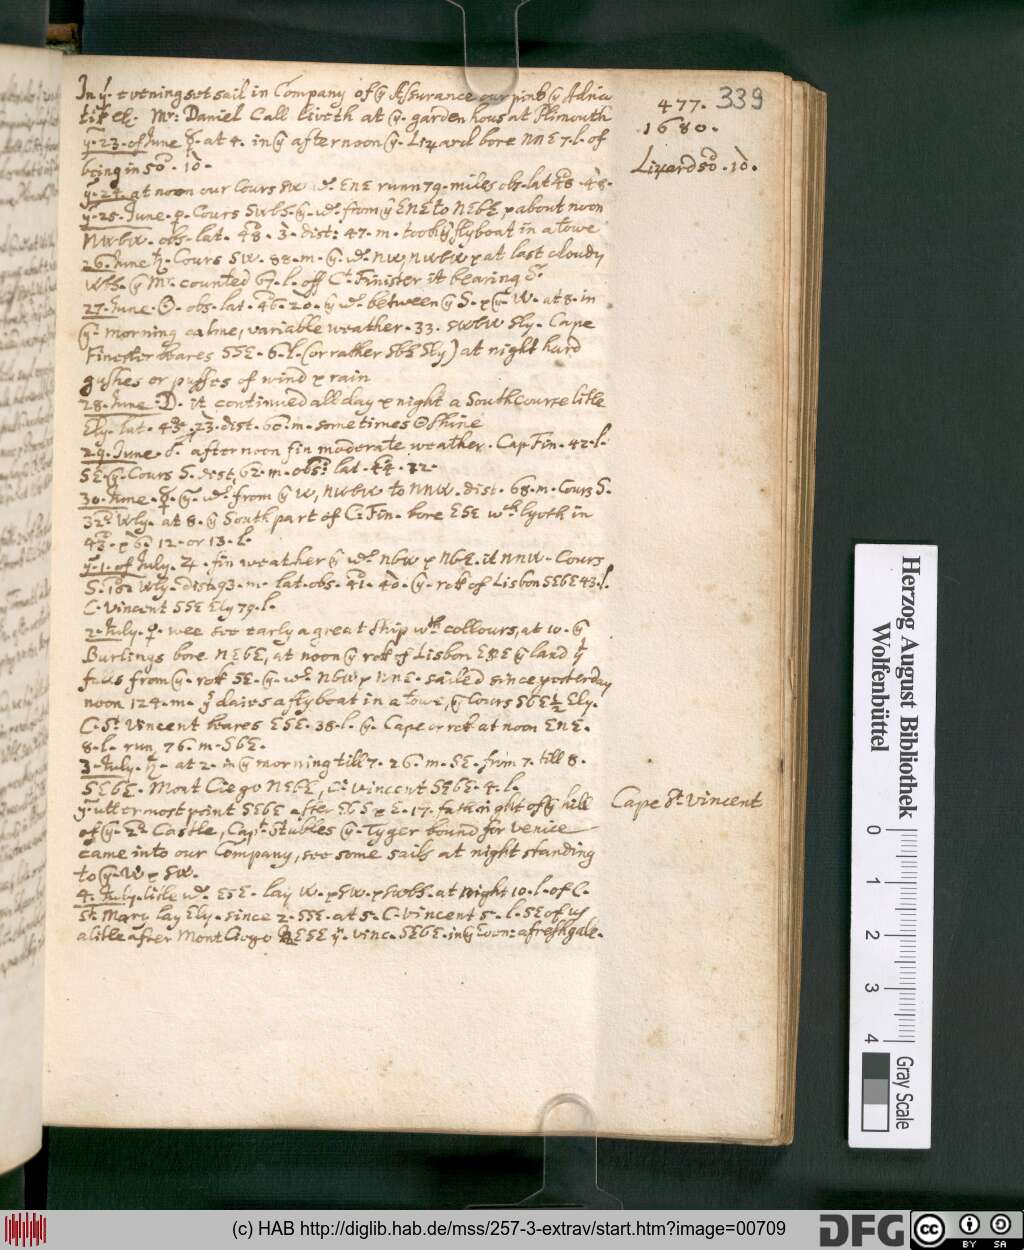 In yͤ evening set sail in Company of yͤ Assurance our pink yͤ Adria
tik &c. Mr: Daniel Call liveth at yͤ garden hous at Plimouth
yͤ 23. of June ☿. at 4. in yͤ afternoon yͤ Lizard bore NNE 7. l. of
being in 50. 10.
yͤ 24. at noon our Cours SW wᵈ. ENE runn 79. miles obs. lat 48. 48.
yͤ 25. June ♀. Cours SWbS. yͤ wᵈ. from yͤ ENE to NEbE, & about noon
NWbW. obs. lat. 48. 3. dist: 47. m. took yͤ flyboat in a towe
26. June ♄. Cours SW. 88. m. yͤ wᵈ. NW, NWbW & at last cloudy
WbS. yͤ Mr. counted 67. l. off C. Finister it bearing S.
27. June. ☉. obs. lat. 46. 20. yͤ wᵈ. between yͤ S. & yͤ W. at 8. in
yͤ morning calme, variable weather. 33. SWbW Sly. Cape
Finester beares SSE. 6. l. (or rather SbE Sly) at night hard
gushes or puffes of wind & rain
28. June ☽. it continued all day & night a South Course litle
Ely. lat. 45. 23. dist. 60. m. sometimes ☉ shine
29. June. ♂. afternoon fin moderate weather. Cap Fin. 42. l.
SE. yͤ Cours S. dist. 62. m. obs: lat. 44. 32.
30. June. ☿. yͤ wᵈ. from yͤ W, NWbW to NNW. dist. 68. m. Cours S.
Wly. at 8. yͤ South part of C. Fin. bore ESE wᶜʰ lyeth in
43. 12. or 13. l.
yͤ 1. of July. ♃. fin weather yͤ wᵈ. NbW & NbE. it NNW. Cours
S. Wly. dist. 93. m. lat. obs. 41. 40. yͤ rok of Lisbon SEbE 43. l.
C. Vincent SSE Ely 79. l.
2. July. ♀. wee see early a great ship wᵗʰ collours, at 10. yͤ
Burlings bore NEbE, at noon yͤ rok of Lisbon ENE yͤ land yᵗ
from yͤ rok SE. yͤ wᵈ. NbW & NNE. sailed since yesterday
noon 124. m. daies a flyboat in a towe, yͤ Cours SbE ½ Ely.
C. St. Vincent beares ESE. 38. l. yͤ Cape or rok at noon ENE.
8. l. run 76. m. SbE.
3. July. ♄. at 2. in yͤ morning till 7. 26. m. SE. from 7. till 8.
SEbE. Mont Ciego NEbE, C. Vincent SEbE. 4. l.
yͤ uttermost point SEbE after EbS & E. 17. fath right of yͤ hill
of yͤ 2ᵈ. Castle, Capt. Stubles yͤ Tyger bound for Venice
came into our Company, see some sails at night standing
to yͤ W & SW.
4. July. litle wᵈ. ESE. lay W. & SW. & SWbS. at night 10. l. of C.
St. Mary lay Ely. since 2. SSE. at 5. C. Vincent 5. l. SE of us
a litle after Mont Ciego NESE yͤ Vinc. SEbE. in yͤ even: a fresh gale.
477. 339
1680.
Lizard 50. 10.
Cape St. Vincent
Herzog August Bibliothek
Wolfenbüttel
0 1 2 3 4
Gray Scale
(c) HAB http://diglib.hab.de/mss/257-3-extrav/start.htm?image=00709
DFG
cc BY SA